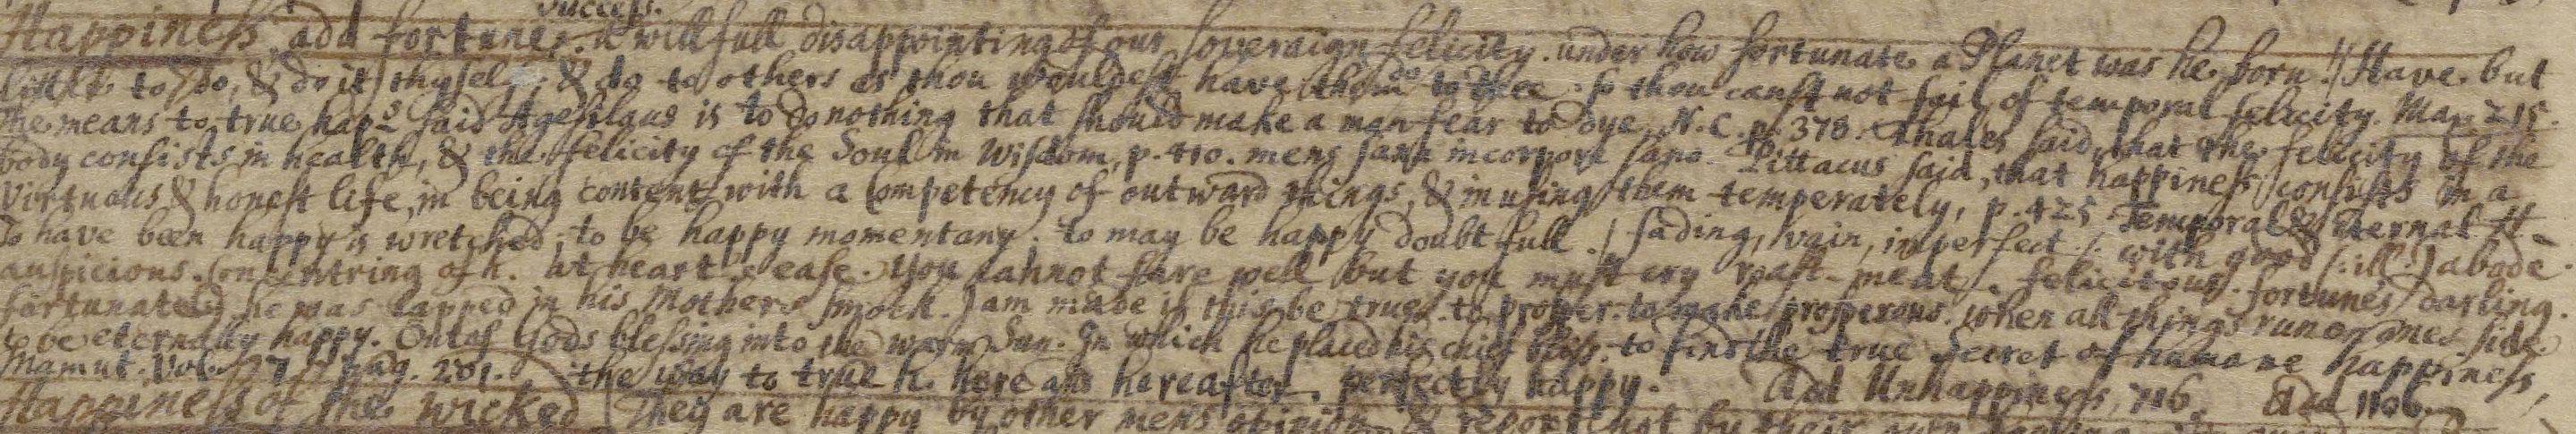 success.
Happiness, add fortune. A willfull disappointing of our soveraign felicity. under how fortunate a Planet was he born!// Have but
little to do, & do it thyself, & do to others as thou wouldest have them do to thee. so thou canst not fail of temporal felicity. Mar. 215.
The means to true hap.s said Agesilaus is to do nothing that should make a man fear to dye, N.C. p. 378. Thales said, that the felicity of the
body consists in health, & the felicity of the Soul in Wisdom, p. 410. mens sana in corpore sano. Pittacus said, that happiness consists in a
Virtuous & honest life, in being content with a Competency of outward things, & in using them temperately, p. 425. Temporal & eternal H.
To have been happy is wretched; to be happy momentany. to may be happy doubtfull. / fading, vain, imperfect /. with good (:ill:) abode.
auspicious. Concentring of h. at heart's ease. You cannot fare well but you must cry roast-meat. felicitous. fortune's darling.
fortunate) he was lapped in his Mothers smock. I am made if this be true. to prosper. to make prosperous. when all things run on ones side.
to be eternally happy. Out of Gods blessing into the warm Sun. In which he placed his chief bliss. to find the true Secret of humane happiness,
Mamut. Vol. 7. pag. 201. the way to true h. here and hereafter. perfectly happy. Add Unhappiness, 716. Add 1106.
Happiness of the wicked They are happy by other mens opinion & report, not by their own